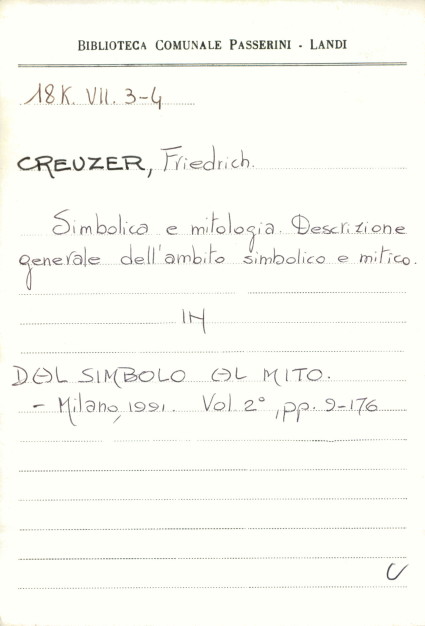 BIBLIOTECA COMUNALE PASSERINI - LANDI
18K. VII. 3-4
CREUZER, Friedrich.
Simbolica e mitologia. Descrizione
generale dell'ambito simbolico e mitico.
IN
DAL SIMBOLO AL MITO.
- Milano, 1991. Vol. 2°, pp. 9-176